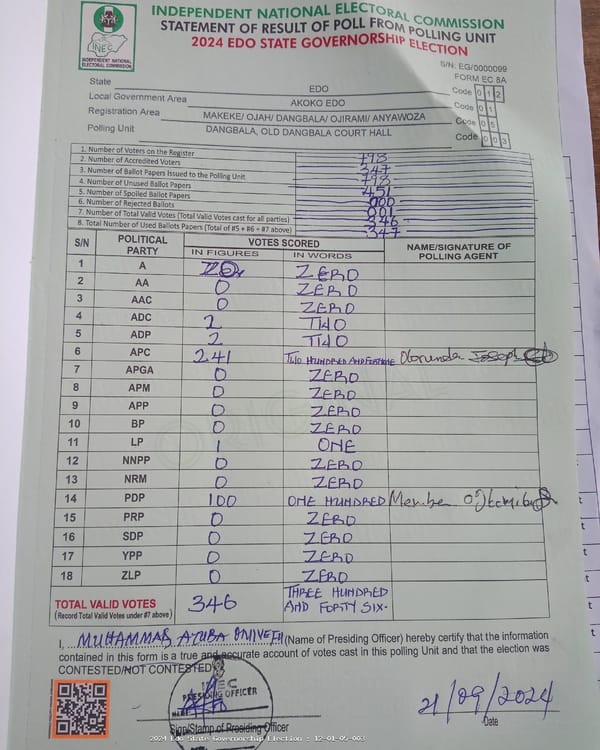 INDEPENDENT NATIONAL ELECTORAL COMMISSION
STATEMENT OF RESULT OF POLL FROM POLLING UNIT
2024 EDO STATE GOVERNORSHIP ELECTION
INEC
INDEPENDENT NATIONAL
ELECTORAL COMMISSION
S/N: EG/0000099
FORM EC 8A
State EDO Code 0 1 2
Local Government Area AKOKO EDO Code 0 1
Registration Area MAKEKE/ OJAH/ DANGBALA/ OJIRAMI/ ANYAWOZA Code 0 5
Polling Unit DANGBALA, OLD DANGBALA COURT HALL Code 0 0 3
1. Number of Voters on the Register 798
2. Number of Accredited Voters 347
3. Number of Ballot Papers Issued to the Polling Unit 798
4. Number of Unused Ballot Papers 451
5. Number of Spoiled Ballot Papers 000
6. Number of Rejected Ballots 001
7. Number of Total Valid Votes (Total Valid Votes cast for all parties) 346
8. Total Number of Used Ballots Papers (Total of #5 + #6 + #7 above) 347
S/N POLITICAL PARTY VOTES SCORED NAME/SIGNATURE OF POLLING AGENT
IN FIGURES IN WORDS
1 A ZERO
2 AA 0 ZERO
3 AAC 0 ZERO
4 ADC 2 TWO
5 ADP 2 TWO
6 APC 241 TWO HUNDRED AND Joseph
7 APGA 0 ZERO
8 APM 0 ZERO
9 APP 0 ZERO
10 BP 0 ZERO
11 LP 1 ONE
12 NNPP 0 ZERO
13 NRM 0 ZERO
14 PDP 100 ONE HUNDRED
15 PRP 0 ZERO
16 SDP 0 ZERO
17 YPP 0 ZERO
18 ZLP 0 ZERO
TOTAL VALID VOTES 346 THREE HUNDRED
(Record Total Valid Votes under #7 above) AND FORTY SIX.
I, MUHAMMAD (Name of Presiding Officer) hereby certify that the information
contained in this form is a true and accurate account of votes cast in this polling Unit and that the election was
CONTESTED/NOT CONTESTED
INEC
PRESIDING OFFICER
Sign/Stamp of Presiding Officer
21/09/2024
Date
2024 Edo State Governorship Election : 12-01-05-003